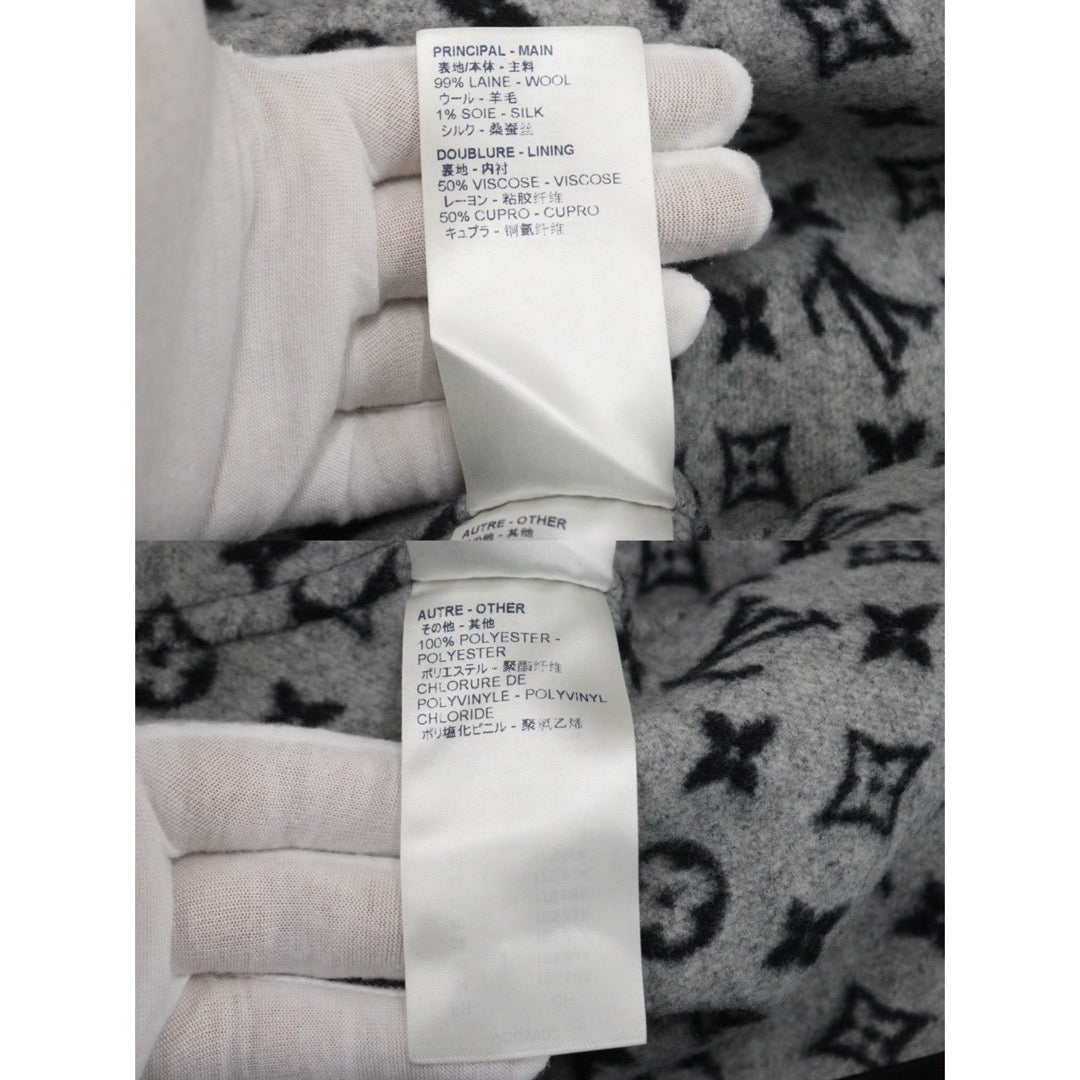 PRINCIPAL - MAIN
表地/本体 - 主料
99% LAINE - WOOL
ウール - 羊毛
1% SOIE - SILK
シルク - 桑蚕丝
DOUBLURE - LINING
裏地 - 内衬
50% VISCOSE - VISCOSE
レーヨン - 粘胶纤维
50% CUPRO - CUPRO
キュプラ - 铜氨纤维
AUTRE - OTHER
その他 - 其他
AUTRE - OTHER
その他 - 其他
100% POLYESTER -
POLYESTER
ポリエステル - 聚酯纤维
CHLORURE DE
POLYVINYLE - POLYVINYL
CHLORIDE
ポリ塩化ビニル - 聚氯乙烯